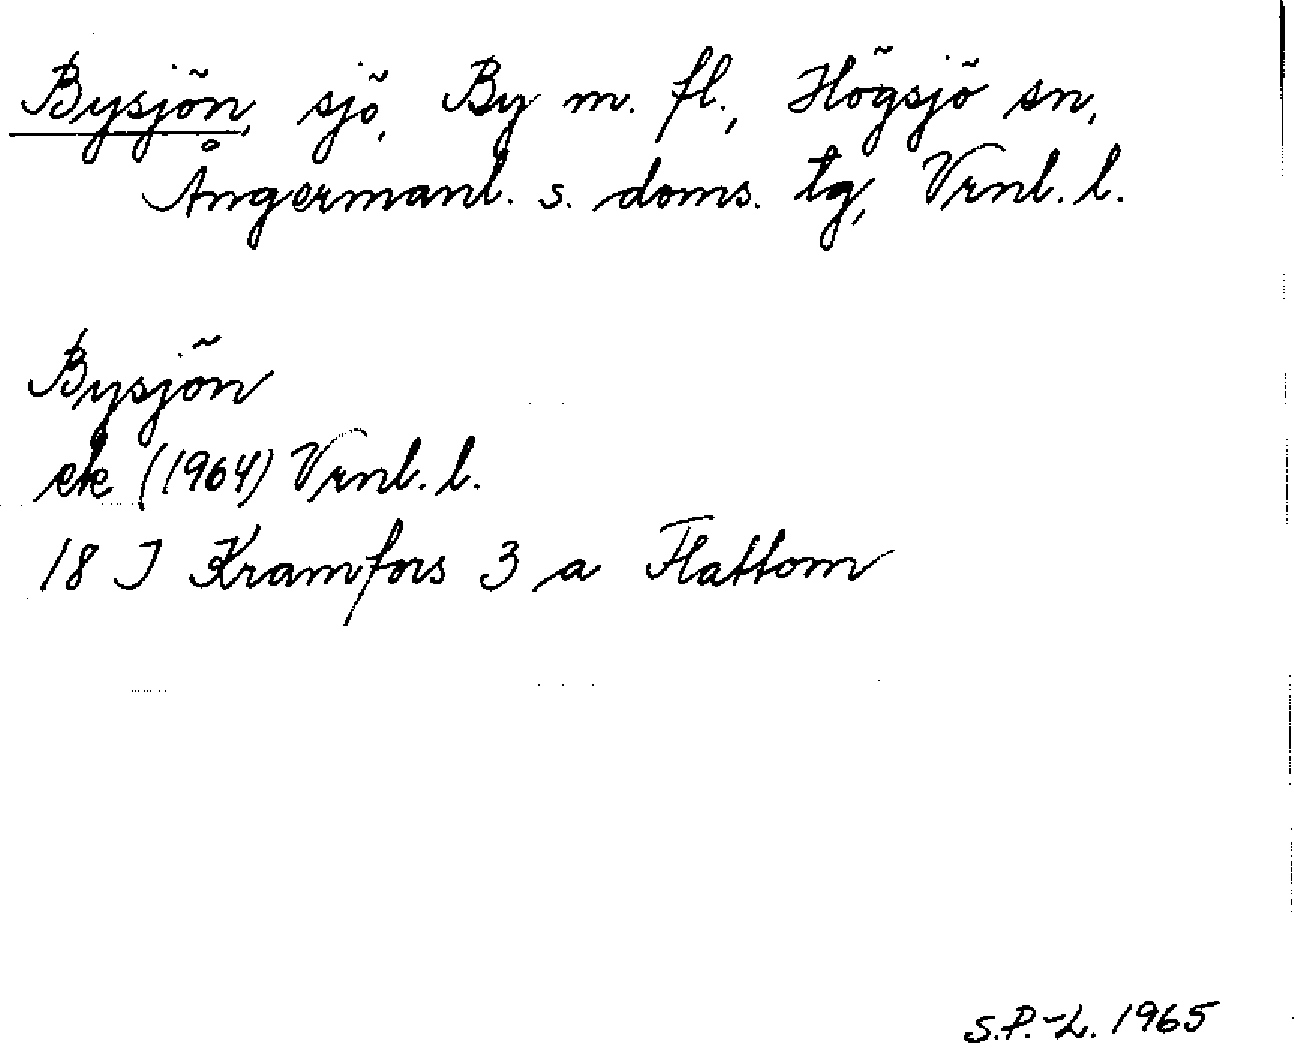 Bysjön, sjö, By m. fl., Högsjö sn,
Ångermanl. s. doms. tg, Vrnl. l.
Bysjön
ek (1964) Vrnl. l.
18 J Kramfors 3 a Flattom
S.P.-L. 1965